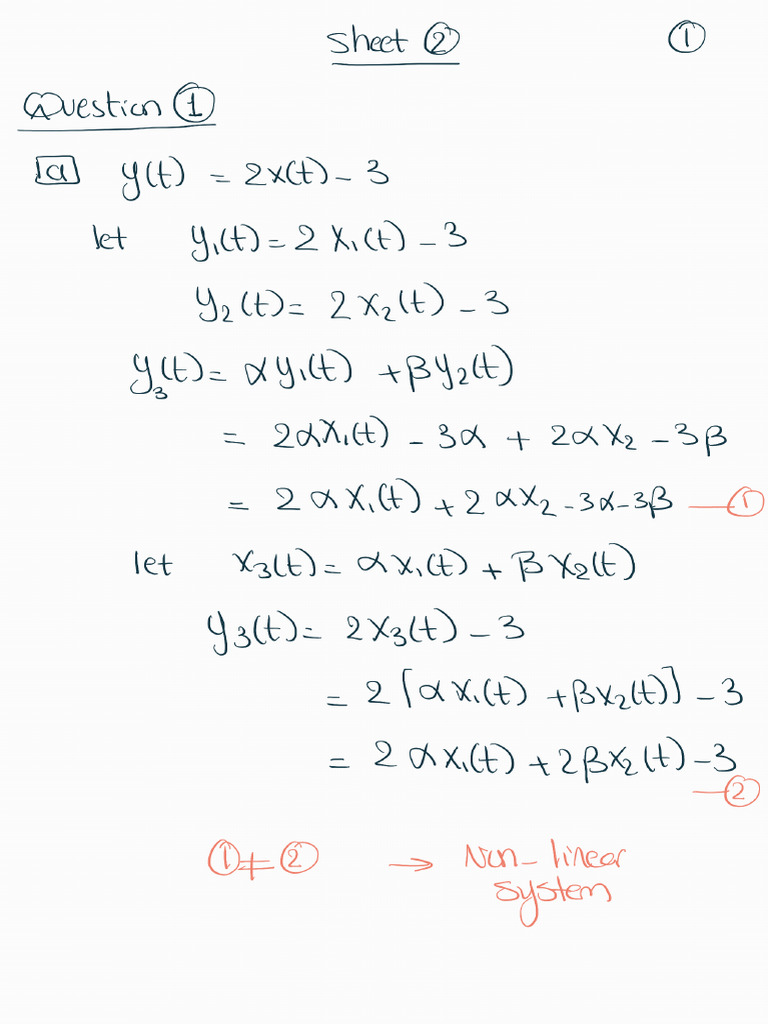 Sheet ② ①
Question ①
a y(t) = 2x(t) - 3
let y₁(t) = 2 x₁(t) - 3
y₂(t) = 2 x₂(t) - 3
y₃(t) = αy₁(t) + βy₂(t)
= 2αx₁(t) - 3α + 2αx₂ - 3β
= 2αx₁(t) + 2αx₂ - 3α - 3β —①
let x₃(t) = αx₁(t) + βx₂(t)
y₃(t) = 2x₃(t) - 3
= 2[αx₁(t) + βx₂(t)] - 3
= 2αx₁(t) + 2βx₂(t) - 3
—②
① ≠ ② → Non-linear
system